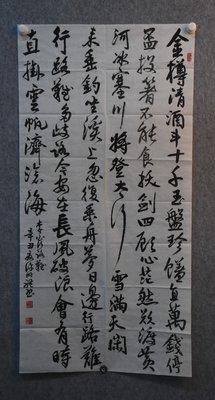 金樽清酒斗十千玉盤珍饈直萬錢停
盃投箸不能食拔劍四顧心茫然欲渡黄
河冰塞川将登太行雪滿天閑
来垂釣坐溪上忽復乘舟夢日邊行路難
行路難多歧路今安在長風破浪會有時
直掛雲帆濟滄海
李白行路難
辛丑